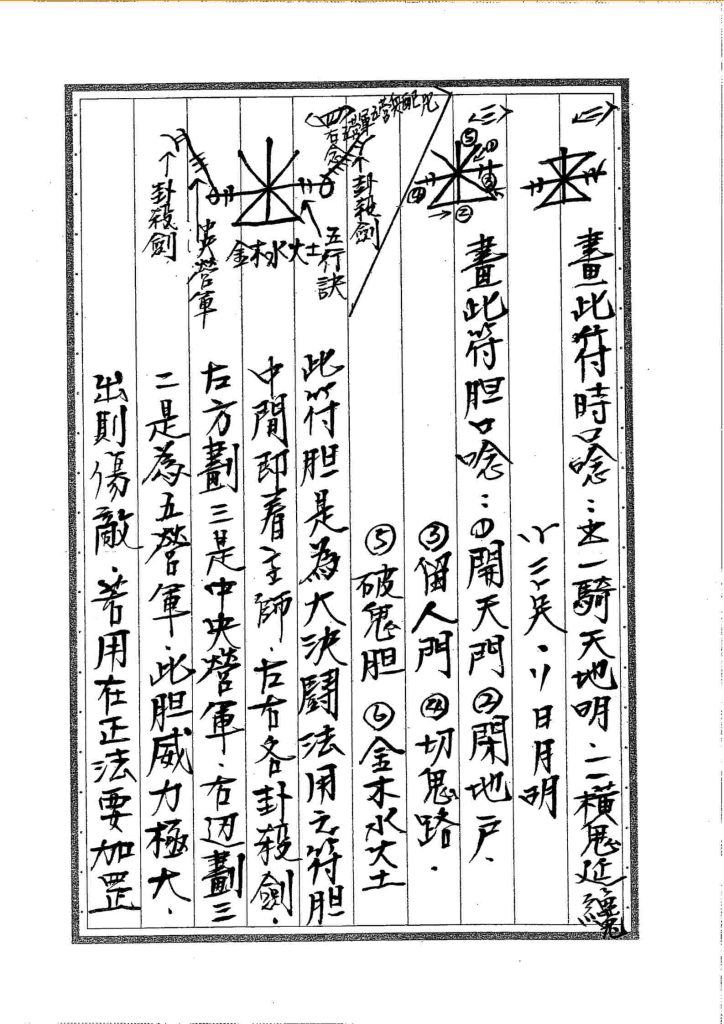 <二>
畫此符時口唸：主一騎天地明，二橫鬼延纏鬼
日月明
<三>
畫此符胆口唸：①開天門 ②閉地戶，
③留人門 ④切鬼路，
⑤破鬼胆 ⑥金木水火土
①
②
④
⑤
(四)
卦殺劍
五行訣
金木水火土
營軍
卦殺劍
此符胆是為大決鬪法用之符胆
中間即看主師，左右各卦殺劍，
左方劃三是中央營軍，右边劃三
二是為五營軍，此胆威力極大，
出則傷敵，若用在正法要加罡